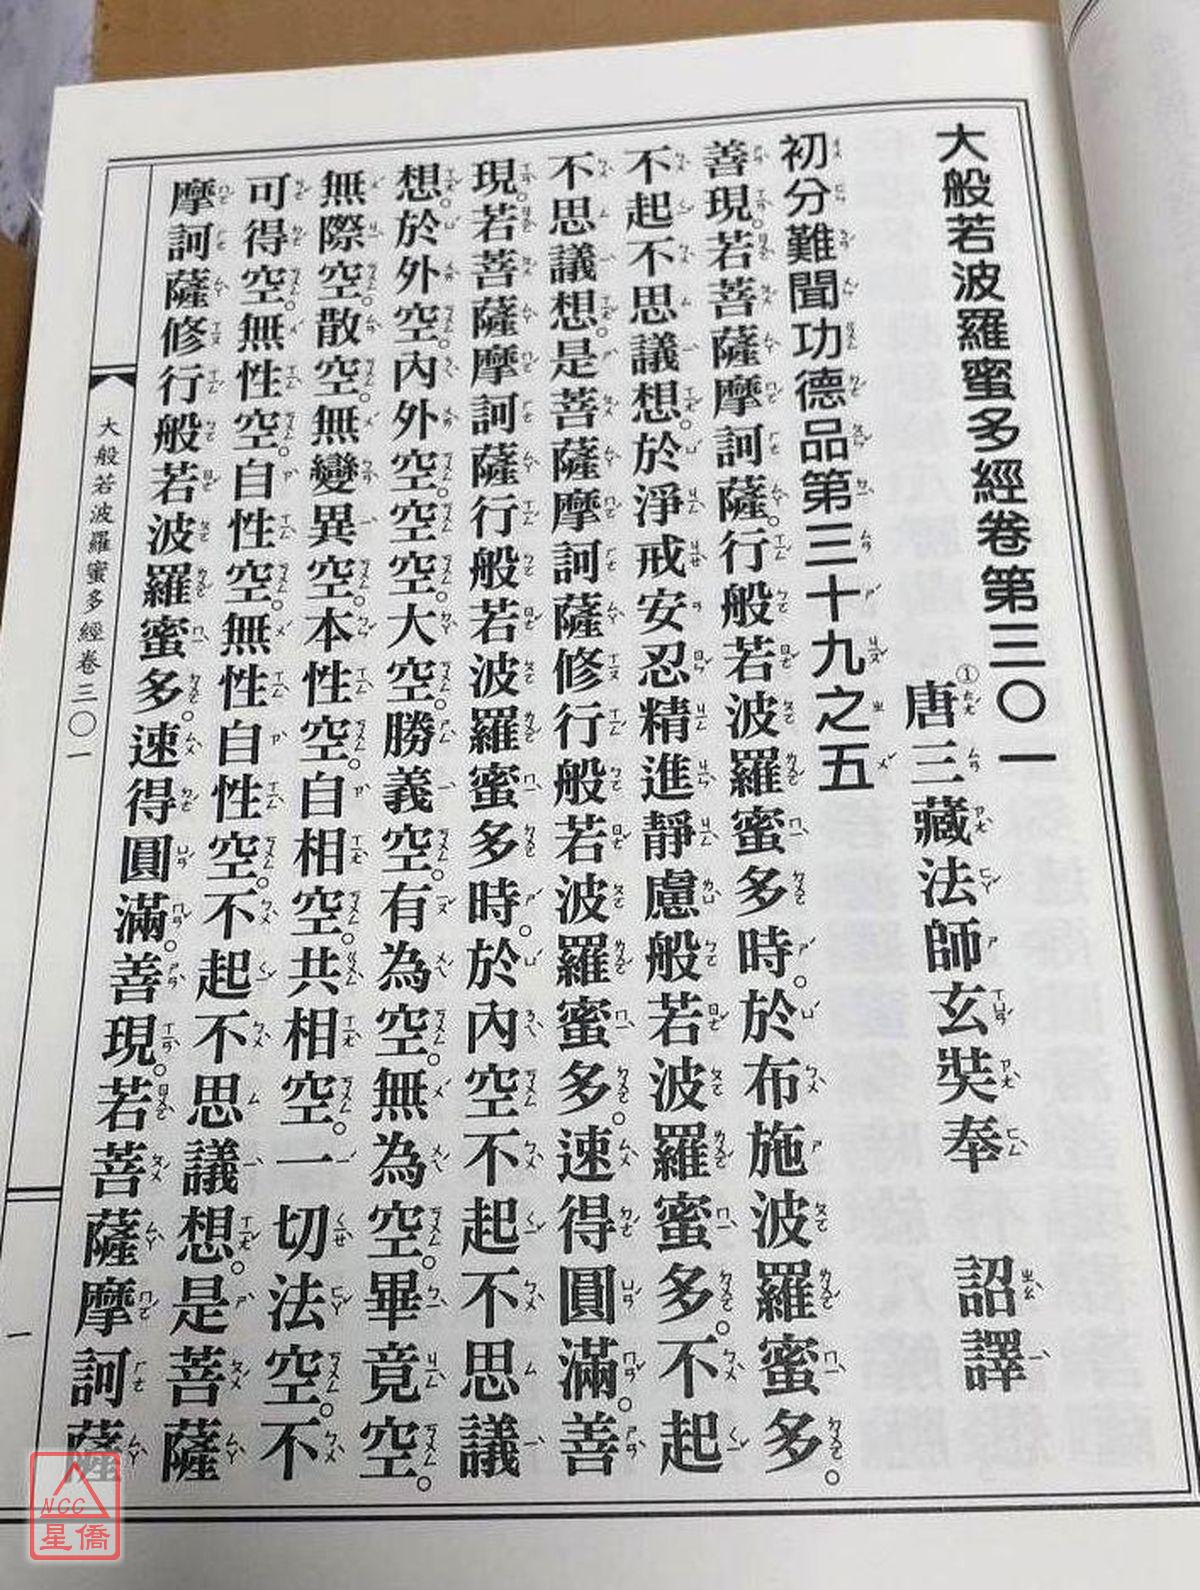 大般若波羅蜜多經卷第三〇一
①唐三藏法師玄奘奉 詔譯
初分難聞功德品第三十九之五
善現。若菩薩摩訶薩。行般若波羅蜜多時。於布施波羅蜜多。
不起不思議想。於淨戒安忍精進靜慮般若波羅蜜多。不起
不思議想。是菩薩摩訶薩修行般若波羅蜜多。速得圓滿。善
現。若菩薩摩訶薩行般若波羅蜜多時。於內空不起不思議
想。於外空。內外空。空空。大空。勝義空。有為空。無為空。畢竟空。
無際空。散空。無變異空。本性空。自相空。共相空。一切法空。不
可得空。無性空。自性空。無性自性空。不起不思議想。是菩薩
摩訶薩修行般若波羅蜜多。速得圓滿。善現。若菩薩摩訶薩
大般若波羅蜜多經卷三〇一
一
NCC
星僑